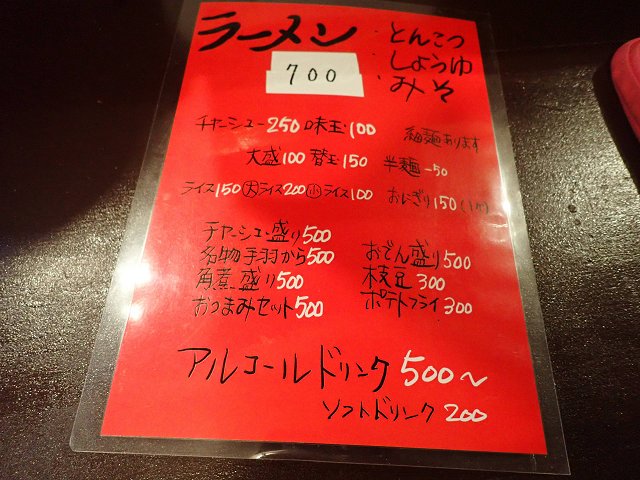 ラーメン
700
・とんこつ
・しょうゆ
・みそ
チャーシュー250 味玉・100 細麺あります
大盛100 替玉・150 半麺-50
ライス150 大ライス200 小ライス100 おにぎり150
チャーシュー盛り500
名物手羽から500
角煮盛り500
おつまみセット500
おでん盛り500
枝豆300
ポテトフライ300
アルコールドリンク500~
ソフトドリンク200